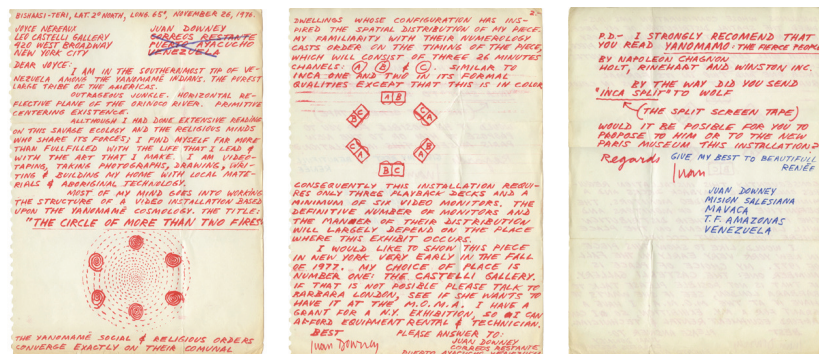 BISHAASI-TERI, LAT. 2º NORTH, LONG. 65º, NOVEMBER 26, 1976.
JOYCE NEREAUX
LEO CASTELLI GALLERY
420 WEST BROADWAY
NEW YORK CITY
JUAN DOWNEY
CORREOS RESTANTE
PUERTO AYACUCHO
VENEZUELA
DEAR JOYCE:
I AM IN THE SOUTHERNMOST TIP OF VE-
NEZUELA AMONG THE YANOMAMÉ INDIANS, THE PUREST
LARGE TRIBE OF THE AMERICAS.
OUTRAGEOUS JUNGLE. HORIZONTAL RE-
FLECTIVE PLANE OF THE ORINOCO RIVER. PRIMITIVE
CENTERING EXISTENCE.
ALTHOUGH I HAD DONE EXTENSIVE READING
ON THIS SAVAGE ECOLOGY AND THE RELIGIOUS MINDS
WHO SHARE ITS FORCES; I FIND MYSELF FAR MORE
THAN FULLFILLED WITH THE LIFE THAT I LEAD &
WITH THE ART THAT I MAKE. I AM VIDEO-
TAPING, TAKING PHOTOGRAPHS, DRAWING, WRI-
TING & BUILDING MY HOME WITH LOCAL MATE-
RIALS & ABORIGINAL TECHNOLOGY.
MOST OF MY MIND GOES INTO WORKING
THE STRUCTURE OF A VIDEO INSTALLATION BASED
UPON THE YANOMAMÉ COSMOLOGY. THE TITLE:
"THE CIRCLE OF MORE THAN TWO FIRES
THE YANOMAMÉ SOCIAL & RELIGIOUS ORDERS
CONVERGE EXACTLY ON THEIR COMUNAL
2.-
DWELLINGS WHOSE CONFIGURATION HAS INS-
PIRED THE SPATIAL DISTRIBUTION OF MY PIECE.
MY FAMILIARITY WITH THEIR NUMEROLOGY
CASTS ORDER ON THE TIMING OF THE PIECE,
WHICH WILL CONSIST OF THREE 26 MINUTES
CHANELS: A B & C. SIMILAR TO
INCA ONE AND TWO IN ITS FORMAL
QUALITIES EXCEPT THAT THIS IS IN COLOR
A B
C A
C A
B C
A B
B C
CONSEQUENTLY THIS INSTALLATION REQUI-
RES ONLY THREE PLAYBACK DECKS AND A
MINIMUM OF SIX VIDEO MONITORS. THE
DEFINITIVE NUMBER OF MONITORS AND
THE MANNER OF THEIR DISTRIBUTION
WILL LARGELY DEPEND ON THE PLACE
WHERE THIS EXHIBIT OCCURS.
I WOULD LIKE TO SHOW THIS PIECE
IN NEW YORK VERY EARLY IN THE FALL
OF 1977. MY CHOICE OF PLACE IS
NUMBER ONE: THE CASTELLI GALLERY.
IF THAT IS NOT POSIBLE PLEASE TALK TO
BARBARA LONDON, SEE IF SHE WANTS TO
HAVE IT AT THE M.O.M.A. I HAVE A
GRANT FOR A N.Y. EXHIBITION, SO I CAN
ADFORD EQUIPMENT RENTAL & TECHNICIAN.
BEST PLEASE ANSWER TO:
Juan Downey JUAN DOWNEY
CORREOS RESTANTE
PUERTO AYACUCHO VENEZUELA
P.D.- I STRONGLY RECOMEND THAT
YOU READ YANOMAMO: THE FIERCE PEOPLE
BY NAPOLEON CHAGNON
HOLT, RINEHART AND WINSTON INC.
BY THE WAY DID YOU SEND
"INCA SPLIT" TO WOLF
(THE SPLIT SCREEN TAPE)
WOULD IT BE POSIBLE FOR YOU TO
PROPOSE TO HIM OR TO THE NEW
PARIS MUSEUM THIS INSTALLATION?
Regards GIVE MY BEST TO BEAUTIFULL
RENÉE
Juan
JUAN DOWNEY
MISION SALESIANA
MAVACA
T.F. AMAZONAS
VENEZUELA